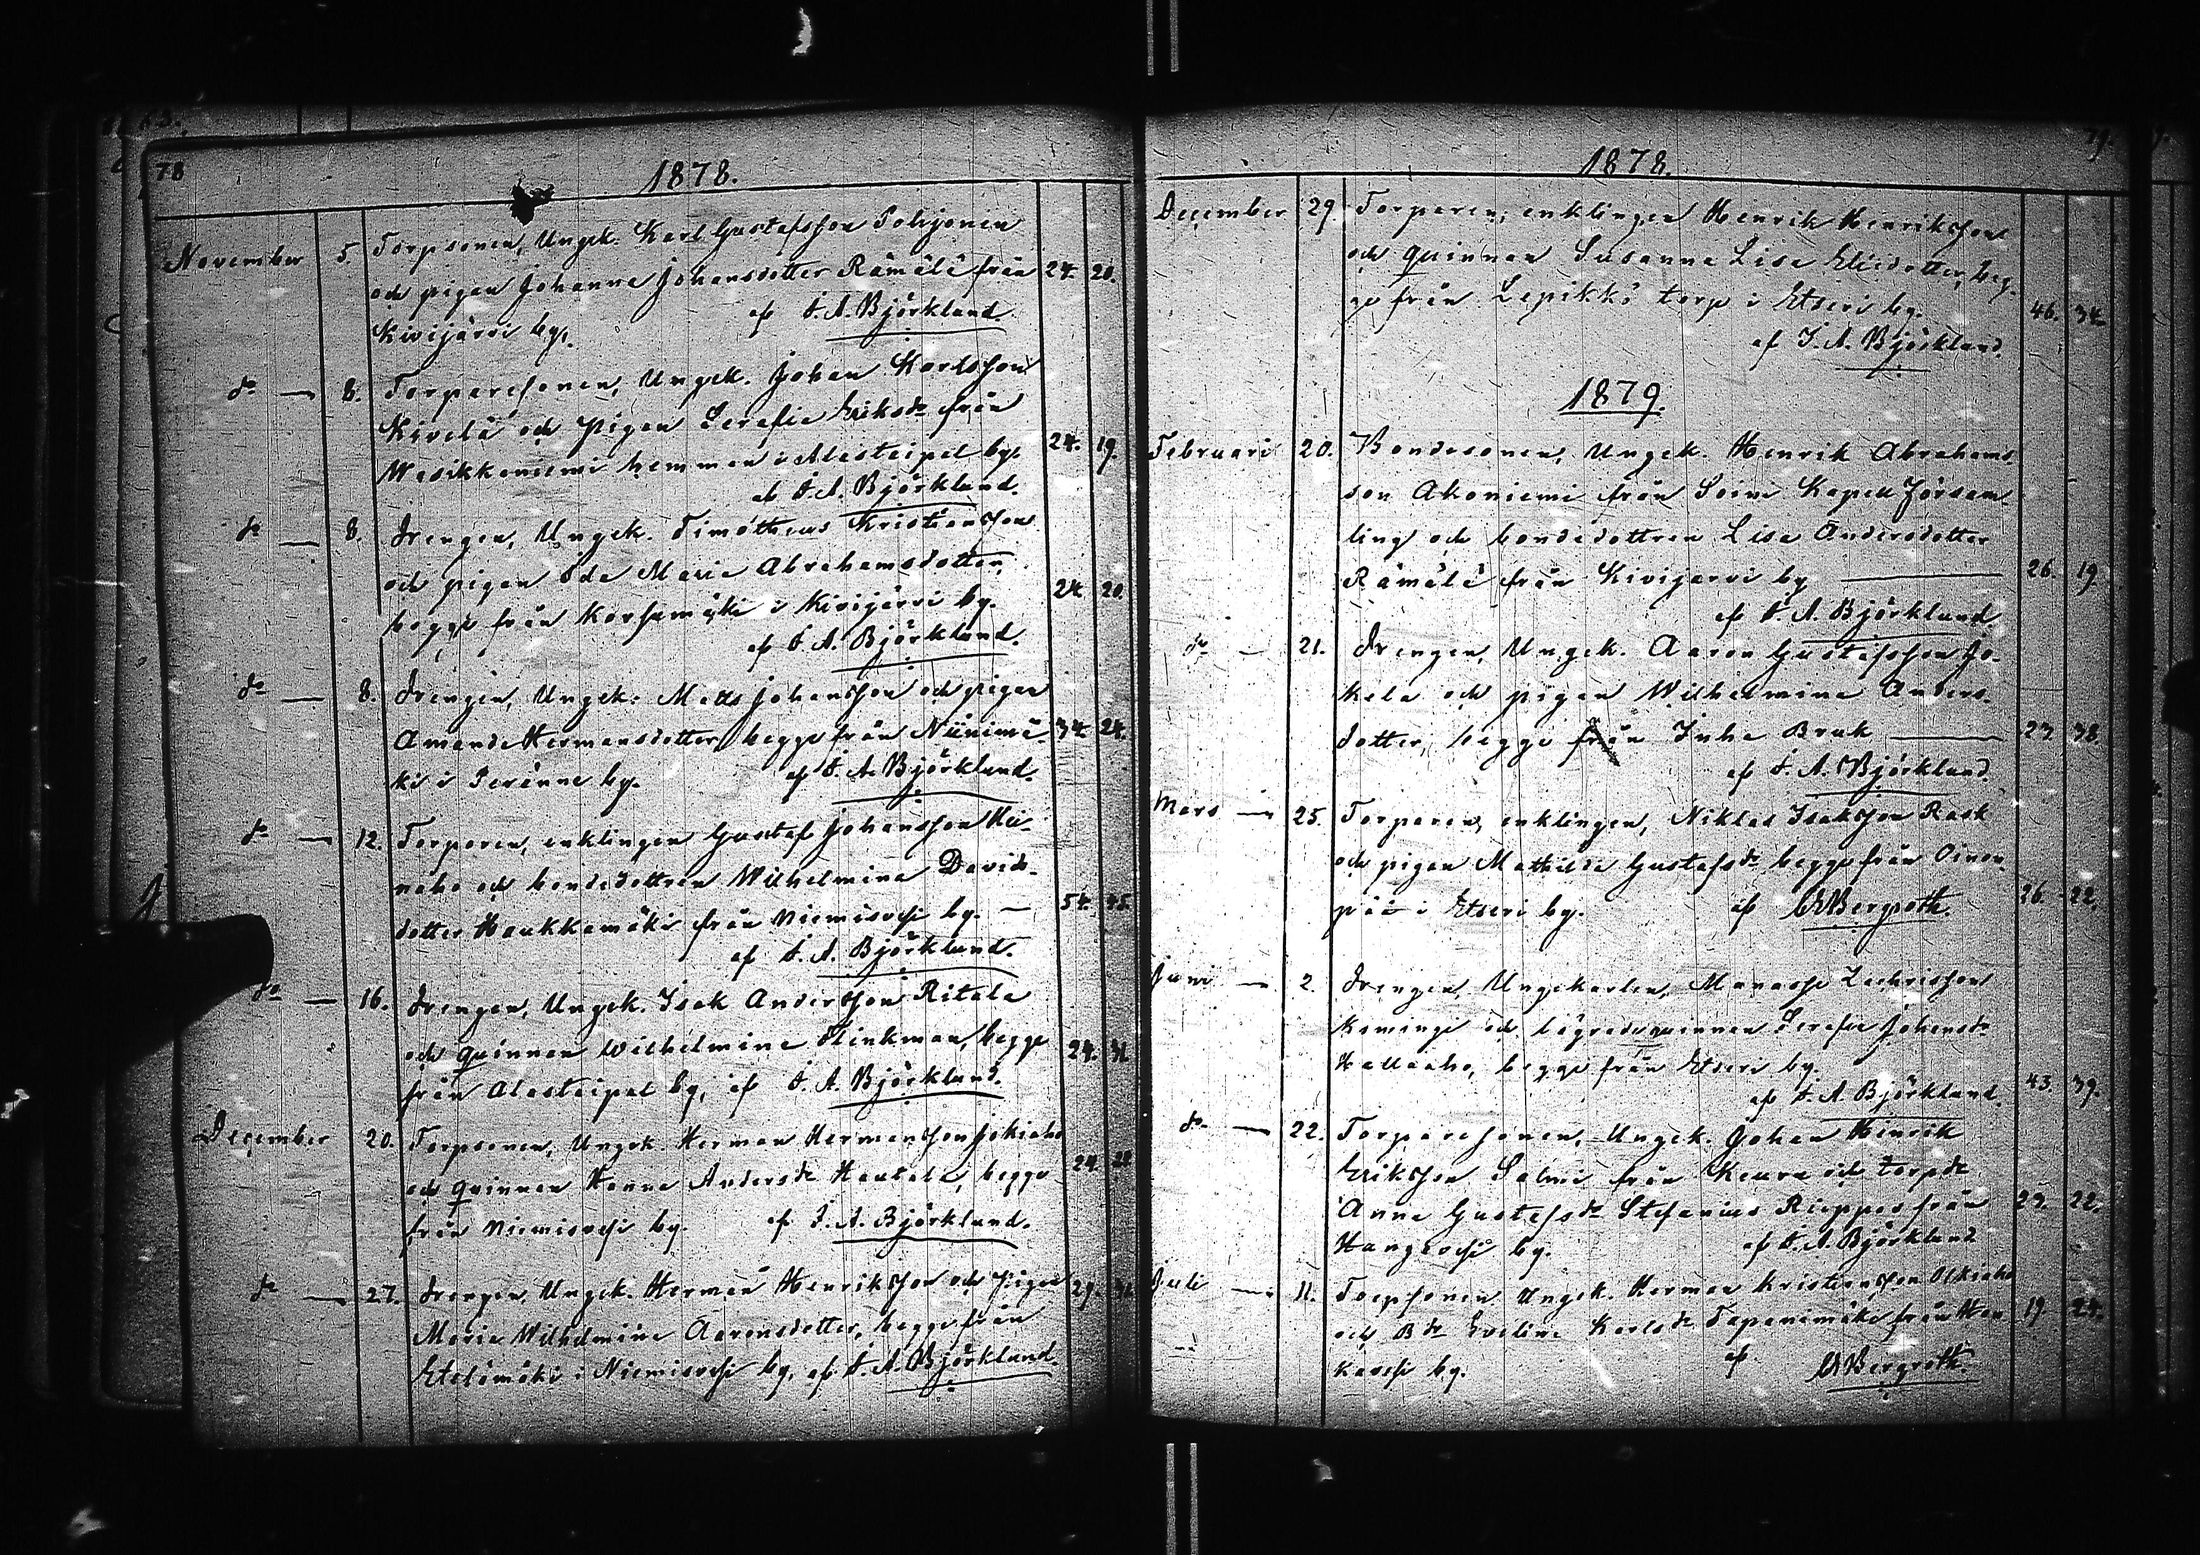 78
1878.
November 5. Torpsonen, Ungk. Karl Gustafsson Pohjonen
och pigan Johanna Johansdotter Rämälä från 24. 20.
Kivijärvi by, af F. A. Björklund.
do — 6. Torparesonen, Ungk. Johan Karlsson
Kivelä och pigan Serafia Eriksdr från
Wasikkaniemi hemman i Alastaipal by 24. 19.
af F. A. Björklund.
do — 8. Drengen, Ungk. Timotheus Kristiansson
och pigan Ida Maria Abrahamsdotter,
begge från Korsumäki i Kivijärvi by. 24 20
af F. A. Björklund.
do — 8. Drengen, Ungk. Matts Johansson och pigan
Amanda Hermansdotter, begge från Niinimä- 34. 24.
ki i Peränne by. af F. A. Björklund.
do — 12. Torparen, enklingen Gustaf Johansson
naho och bondedottren Wilhelmina Davids-
dotter Haukkamäki från Niemisvesi by. — 54. 45.
af F. A. Björklund.
do — 16. Drengen, Ungk. Isak Andersson Ritala
och qvinnan Wilhelmina Flinkman, begge 24. 31.
från Alastaipal by, af F. A. Björklund.
December 20. Torpsonen, Ungk. Herman Hermansson Jokiaho
och qvinnan Hanna Andersdr Hautala, begge 24. 22
från Niemisvesi by. af F. A. Björklund.
do — 27. Drengen, Ungk. Herman Henriksson och pigan 29.
Maria Wilhelmina Aaronsdotter, begge från
Etelämäki i Niemisvesi by, af F. A. Björklund.
79.
1878.
December 29. Torparen, enklingen Henrik Henriksson
och qvinnan Susanna Lisa Eliedotter, beg-
ge från Lepikkö torp i Etseri by. 46. 34
af F. A. Björklund.
1879.
Februari 20. Bondesonen, Ungk. Henrik Abrahams-
son Akoniemi från Soini Kapell församl-
ling och bondedottren Lisa Andersdotter
Rämälä från Kivijärvi by — 26. 19.
af F. A. Björklund.
do — 21. Drengen, Ungk. Aaron Gustafsson Jo-
kela och pigan Wilhelmina Anders-
dotter, begge från Inha Bruk — 23 38.
af F. A. Björklund.
Mars — 25. Torparen, enklingen, Niklas Isaksson Rask
och pigan Mathilda Gustafsdr begge från Oinon-
pää i Etseri by. af Bergroth. 26. 22.
Juni — 2. Drengen, Ungkarlen, Manasse Zachrisson
Kaminge och lägradeqvinnan Serafia Johansdr
Hallaaho, begge från Etseri by.
af F. A. Björklund. 43. 39.
do — 22. Torparesonen, Ungk. Johan Hinrik
Eriksson Salmi från Keuru och torpdr
Anna Gustafsdr Stefanius Rieppo från 23. 22.
Hangvesi by. af F. A. Björklund
Juli — 11. Torpsonen Ungk. Herman Kristiansson Olkiaho
och Bdr Evelina Karlsdr Tapanimäki från Han- 19. 24.
kavesi by. af Bergroth.